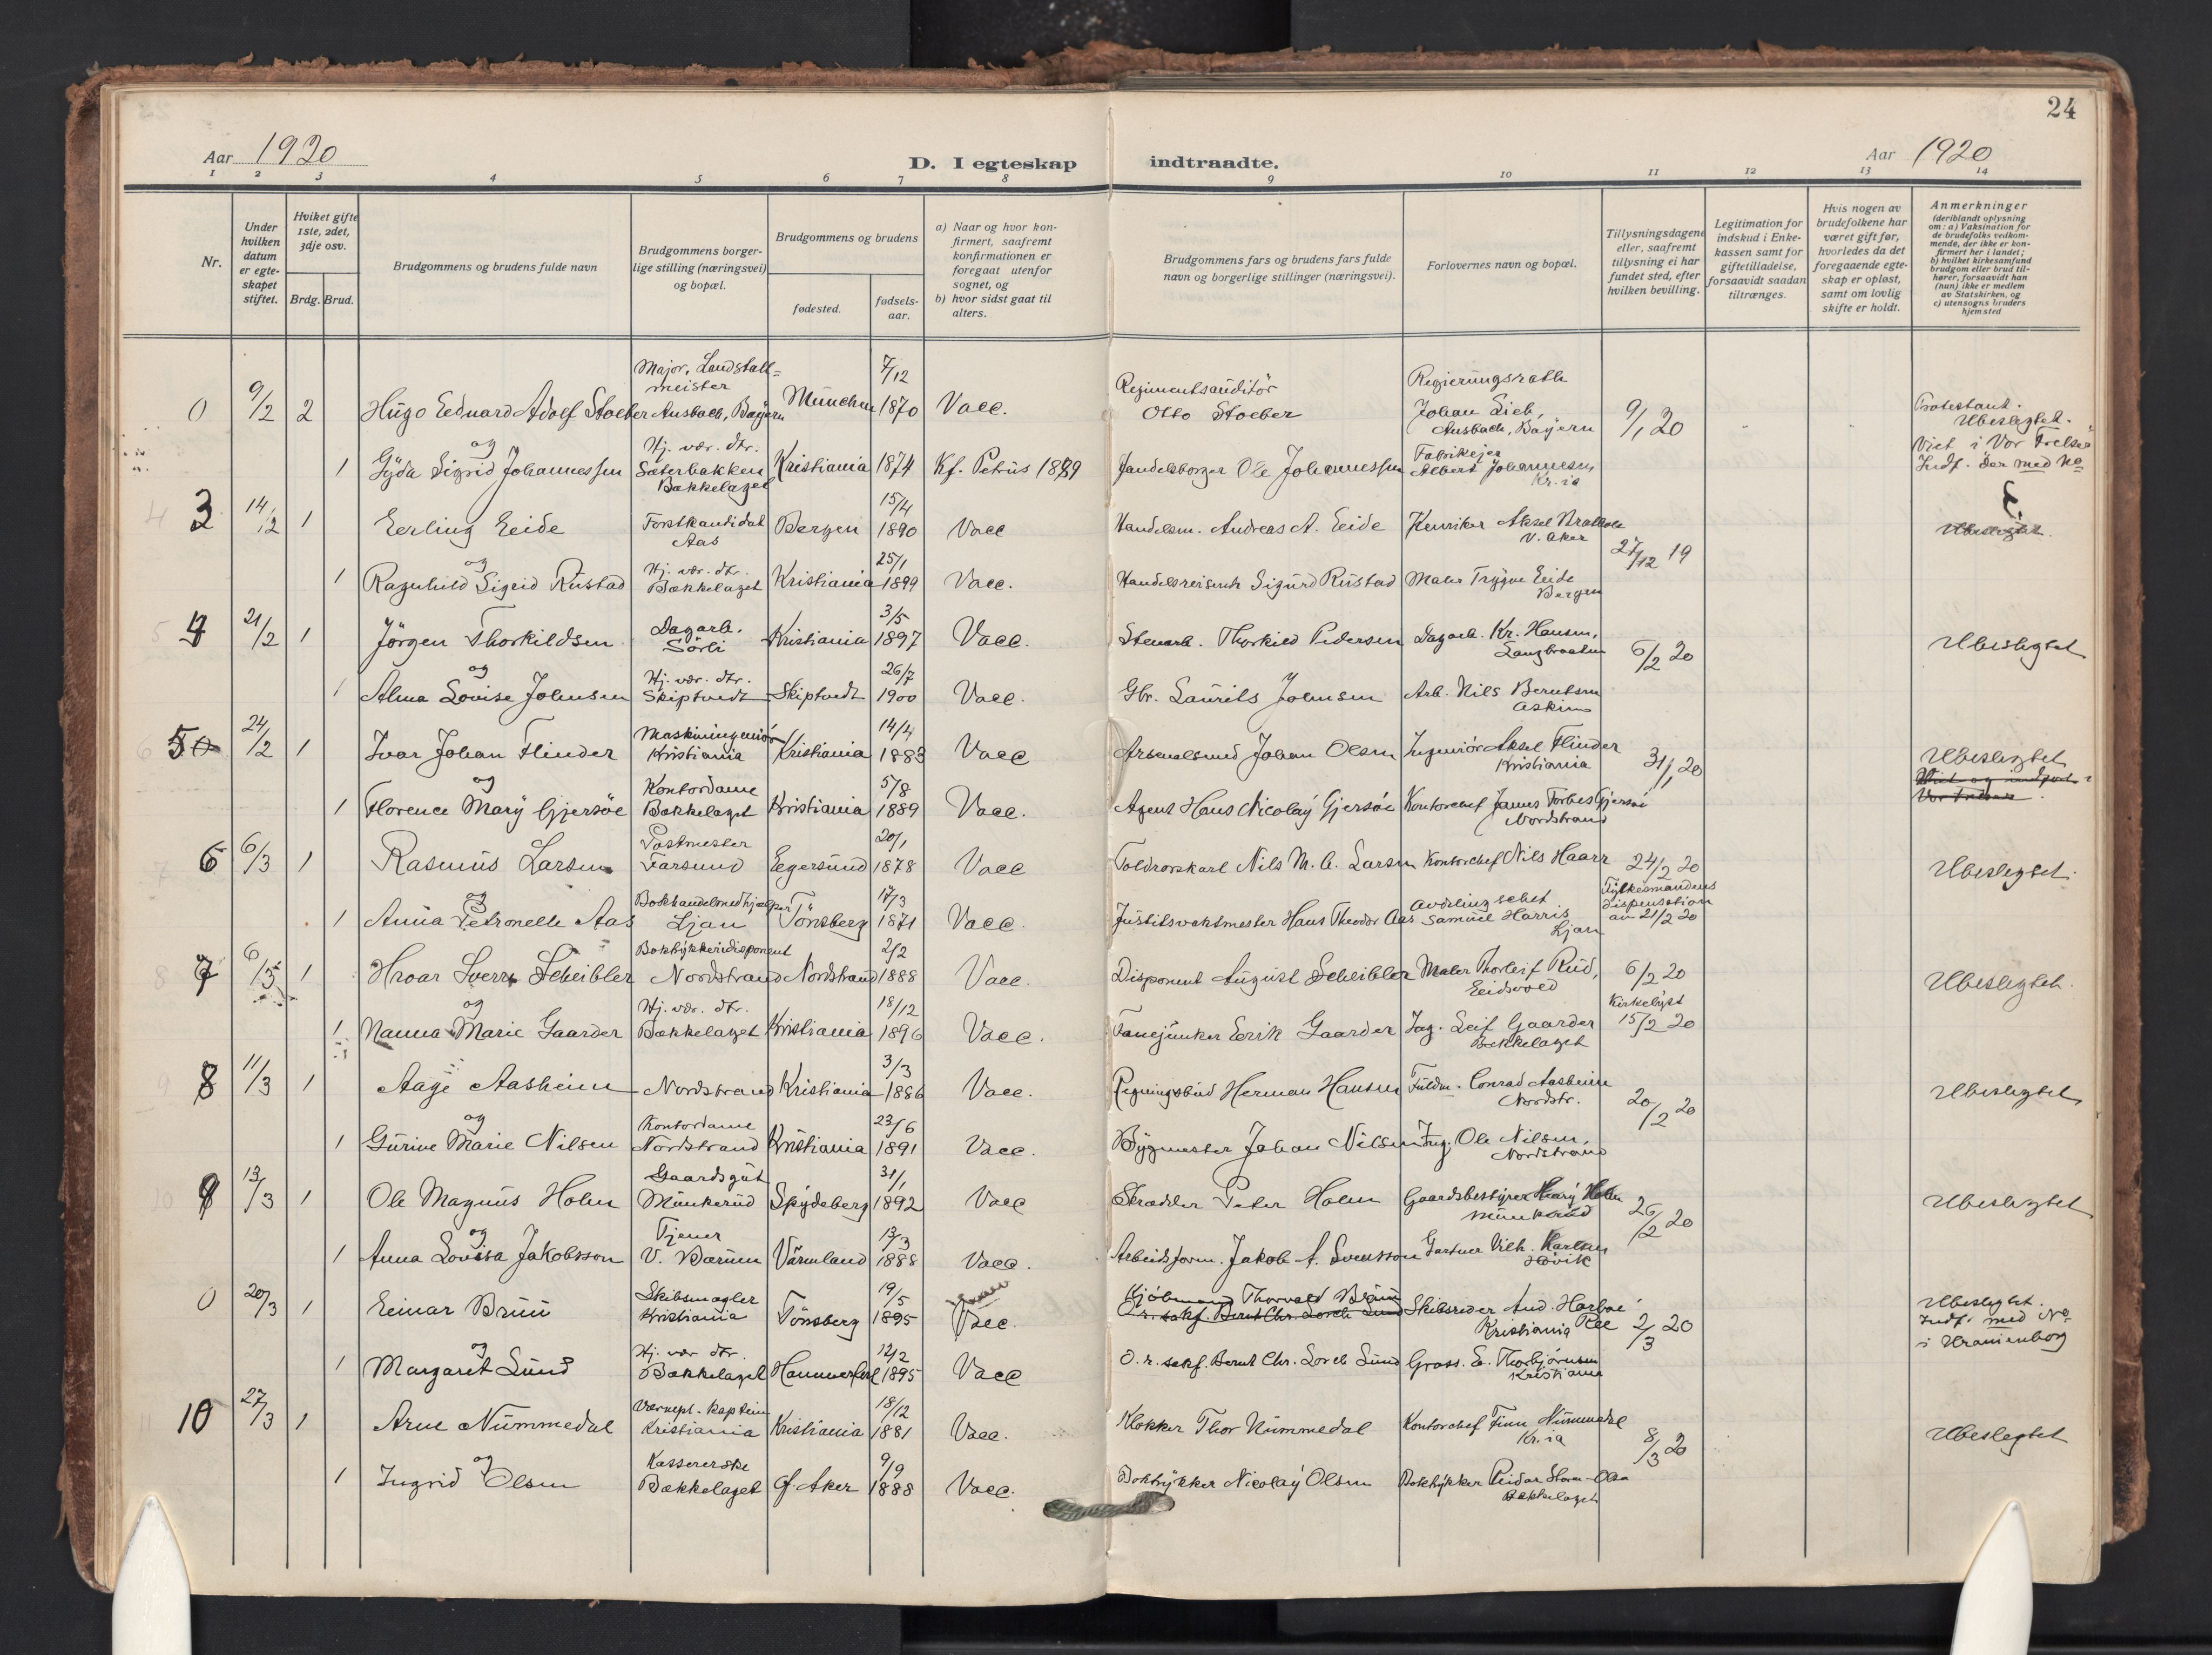 24
Aar 1920
D. I egteskap indtraadte.
Aar 1920
1 2 3 4 5 6 7 8 9 10 11 12 13 14
Nr.
Under hvilken datum er egteskapet stiftet.
Hviket gifte 1ste, 2det, 3dje osv.
Brdg. Brud.
Brudgommens og brudens fulde navn
Brudgommens borgerlige stilling (næringsvei) og bopæl.
Brudgommens og brudens
fødested.
fødselsaar.
a) Naar og hvor konfirmert, saafremt konfirmationen er foregaat utenfor sognet, og
b) hvor sidst gaat til alters.
Brudgommens fars og brudens fars fulde navn og borgerlige stillinger (næringsvei).
Forlovernes navn og bopæl.
Tillysningsdagene eller, saafremt tillysning ei har fundet sted, efter hvilken bevilling.
Legitimation for indskud i Enkekassen samt for giftetilladelse, forsaavidt saadan tiltrænges.
Hvis nogen av brudefolkene har været gift før, hvorledes da det foregaaende egteskap er opløst, samt om lovlig skifte er holdt.
Anmerkninger
(deriblandt oplysning om: a) Vaksination for de brudefolks vedkommende, der ikke er konfirmert her i landet; b) hvilket kirkesamfund brudgom eller brud tilhører, forsaavidt han (hun) ikke er medlem av Statskirken, og c) utensogns bruders hjemsted
0 9/2 2 Hugo Eduard Adolf Stoeber Major, Landstallmeister Ansbach, Bayern München 7/12 1870 Vacc. Regimentsauditör Otto Stoeber Regierungsrath Johan Lieb, Ansbach, Bayern 9/1 20 Protestant. Ubeslegtet. Viet i Vor Frelser Indf. der med No
og
1 Gyda Sigrid Johannessen Hj. vær. dtr. Sæterbakken Bækkelaget Kristiania 1874 Kf. Petrus 1889 Handelsborger Ole Johannessen Fabrikejer Albert Johannessen Kr.ia
3 14/2 1 Eerling Eeide Forstkandidat Aas Bergen 15/4 1890 Vacc Handelsm. Andreas A. Eeide Aksel V. Aker 27/12 19 Ubeslegtet.
og
1 Ragnhild Sigrid Rustad Hj. vær. dtr. Bækkelaget Kristiania 25/1 1899 Vacc. Handelsreisende Sigurd Rustad Maler Trygve Eeide Bergen
4 21/2 1 Jörgen Thorkildsen Dagarb. Sörli Kristiania 3/5 1897 Vacc. Stenarb. Thorkild Pedersen Dagarb. Kr. Hansen, Langbraaten 6/2 20 Ubeslegtet
og
1 Alma Lovise Johnsen Hj. vær. dtr. Skiptvedt Skiptvedt 26/7 1900 Vacc. Gbr. Laurits Johnsen Arb. Nils Berntsen Askim
5 24/2 1 Ivar Johan Flinder Maskiningeniör Kristiania Kristiania 14/4 1883 Vacc Arsenalsmed Johan Olsen Ingeniör Aksel Flinder Kristiania 31/1 20 Ubeslegtet
og
1 Florence Mary Gjersöe Kontordame Bækkelaget Kristiania 5/8 1889 Vacc. Agent Hans Nicolay Gjersöe Kontorchef James Forbes Gjersöe Nordstrand
6 6/3 1 Rasmus Larsen Postmester Farsund Egersund 20/1 1878 Vacc Toldrorskarl Nils M. A. Larsen Kontorchef Nils Haarr 24/2 20 Ubeslegtet.
og
1 Anna Petronelle Aas Bokhandelmedhjælper Ljan Tönsberg 17/3 1871 Vacc. Justitsvaktmester Hans Theodor Aas Avdelingschef Samuel Harris Ljan Fylkesmandens dispensation av 21/2 20
7 6/3 1 Hroar Sverre Scheibler Boktrykkeridisponent Nordstrand Nordstrand 2/2 1888 Vacc. Disponent August Scheibler Maler Thorleif Rud, Eeidsvold 6/2 20 Ubeslegtet.
og
1 Nanna Marie Gaarder Hj. vær. dtr. Bækkelaget Kristiania 18/12 1896 Vacc. Fanejunker Eerik Gaarder Ing. Leif Gaarder Bækkelaget Kirkelyst 15/2 20
8 11/3 1 Aage Aasheim Nordstrand Kristiania 3/3 1886 Vacc. Regningsbud Herman Hansen Fuldm. Conrad Aasheim Nordstr. 20/2 20 Ubeslegtet
og
1 Gurine Marie Nilsen Kontordame Nordstrand Kristiania 23/6 1891 Vacc. Bygmester Johan Nilsen Ing. Ole Nilsen, Nordstrand
9 13/3 1 Ole Magnus Holm Gaardsgut Munkerud Spydeberg 31/1 1892 Vacc Skrædder Peter Holm Gaardsbestyrer Harry Holm Munkerud 26/2 20 Ubeslegtet
og
1 Anna Lovisa Jakobsson Tjener V. Bærum Värmland 13/3 1888 Vacc. Arbeidsform. Jakob A. Svensson Gartner Vilh. Karlsen Hövik
0 20/3 1 Eeinar Bruu Skibsmægler Kristiania Tönsberg 19/5 1895 Vacc. Kjöbmand Thorvald Bruu O. r. sakf. Bernt Chr. Lorck Lund Skibsreder And. Harboe Ree Kristiania 2/3 20 Ubeslegtet. Indf. med No i Uranienborg
og
1 Margaret Lund Hj. vær. dtr. Bækkelaget Hammerfest 12/2 1895 Vacc O. r. sakf. Bernt Chr. Lorck Lund Gross. E. Thorbjörnsen Kristiania
10 27/3 1 Arne Nummedal Vernepl. kaptein Kristiania Kristiania 18/12 1881 Vacc. Klokker Thor Nummedal Kontorchef Finn Nummedal Kr.ia 8/3 20 Ubeslegtet
og
1 Ingrid Olsen Kassererske Bækkelaget Gl. Aker 9/9 1888 Vacc. Boktrykker Nicolay Olsen Boktrykker Reidar Storm-Olsen Bækkelaget